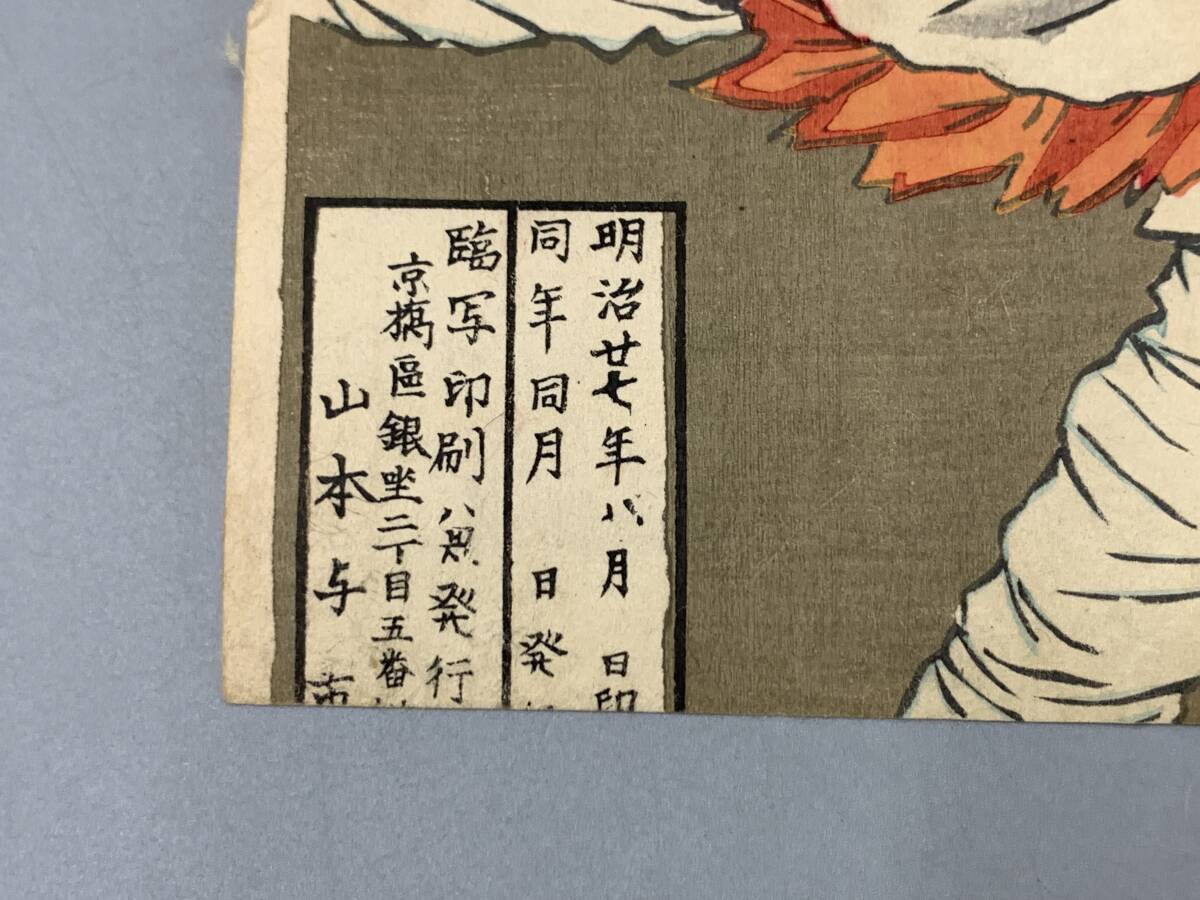 明治廿七年八月 日印
同年同月 日発
臨写印刷 兼発行
京橋區銀座二丁目五番
山本与市